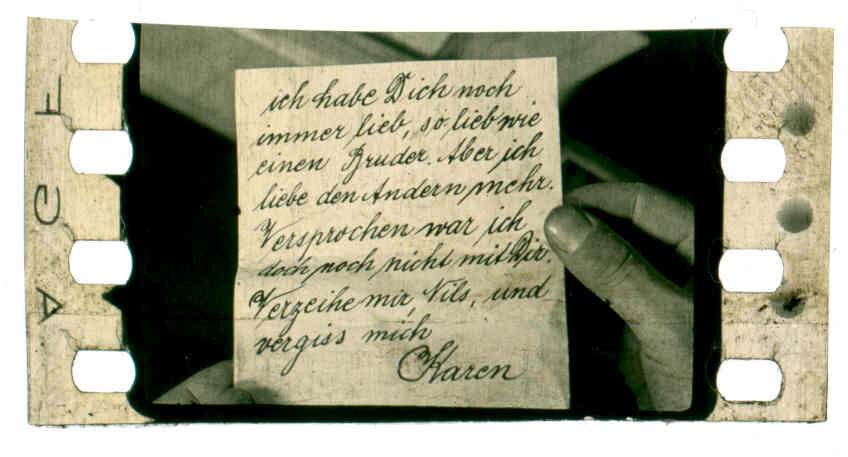 ich habe Dich noch
immer lieb, so lieb wie
einen Bruder. Aber ich
liebe den Andern mehr.
Versprochen war ich
doch noch nicht mit Dir.
Verzeihe mir, Nils, und
vergiss mich
Karen
AGF